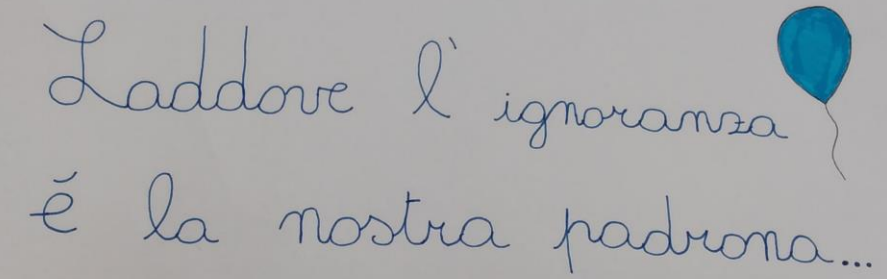 Laddove l' ignoranza
è la nostra padrona...